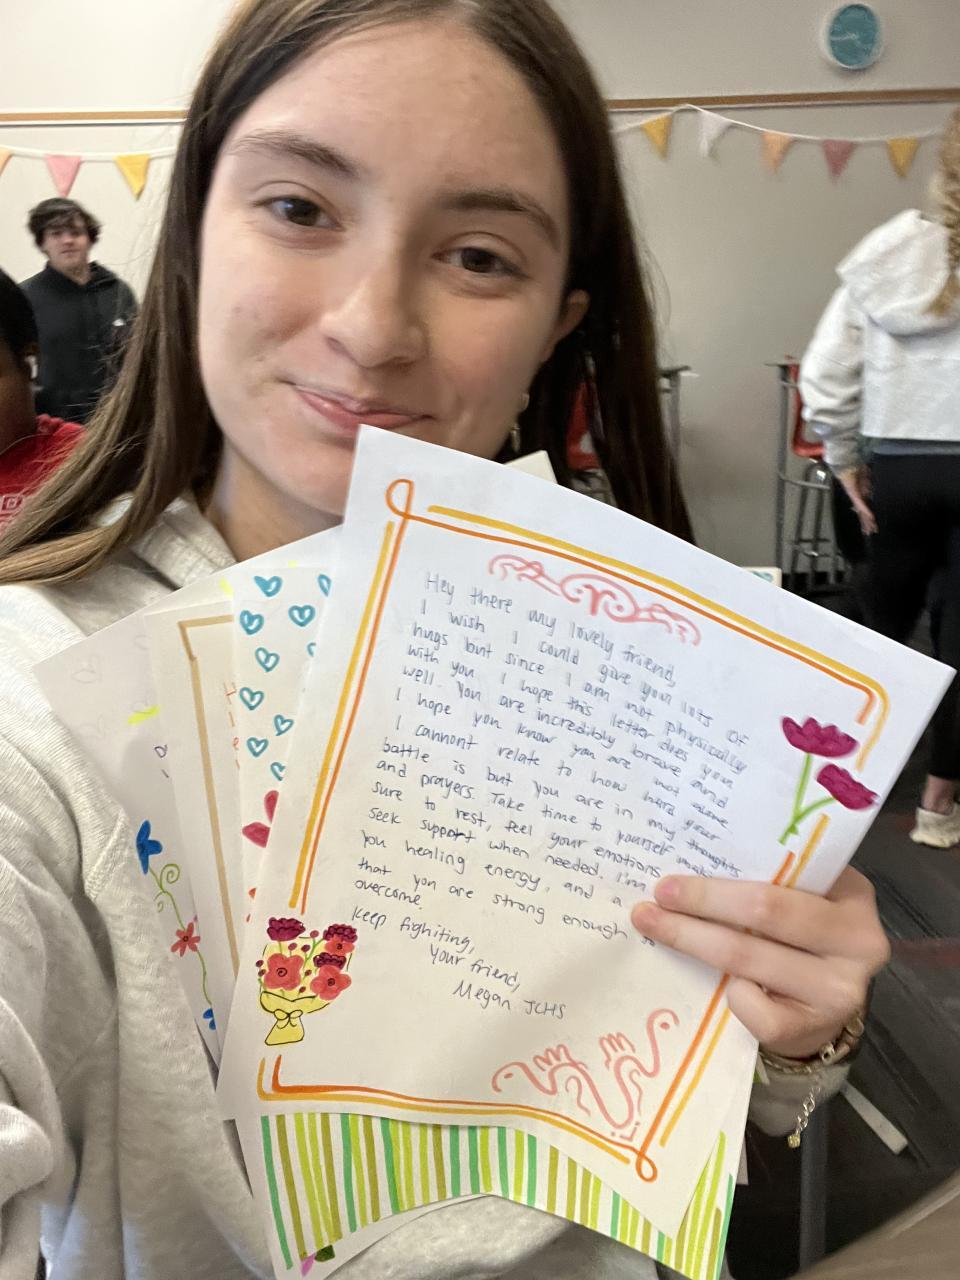 Hey there my lovely friend,
I wish I could give you lots of
hugs but since I am not physically
with you I hope this letter does you
well. You are incredibly brave and
I hope you know you are not alone.
I cannont relate to how hard your
battle is but you are in my thoughts
and prayers. Take time to yourself
sure to rest, feel your emotions
seek support when needed. I'm
you healing energy, and a
that you are strong enough to
overcome.
Keep fighiting,
Your friend,
Megan JCHS